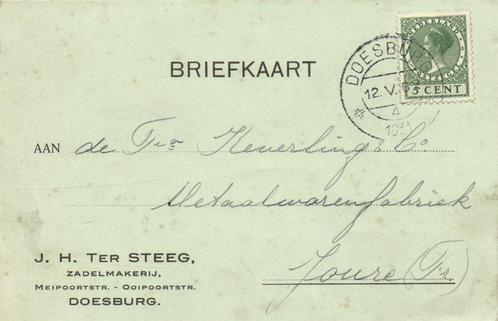 NEDERLAND
5 CENT
DOESBURG
12.V.
4
1931
BRIEFKAART
AAN de Fra Keverling & Co
Metaalwarenfabriek
Joure (Fr.)
J. H. TER STEEG,
ZADELMAKERIJ,
MEIPOORTSTR. - OOIPOORTSTR.
DOESBURG.